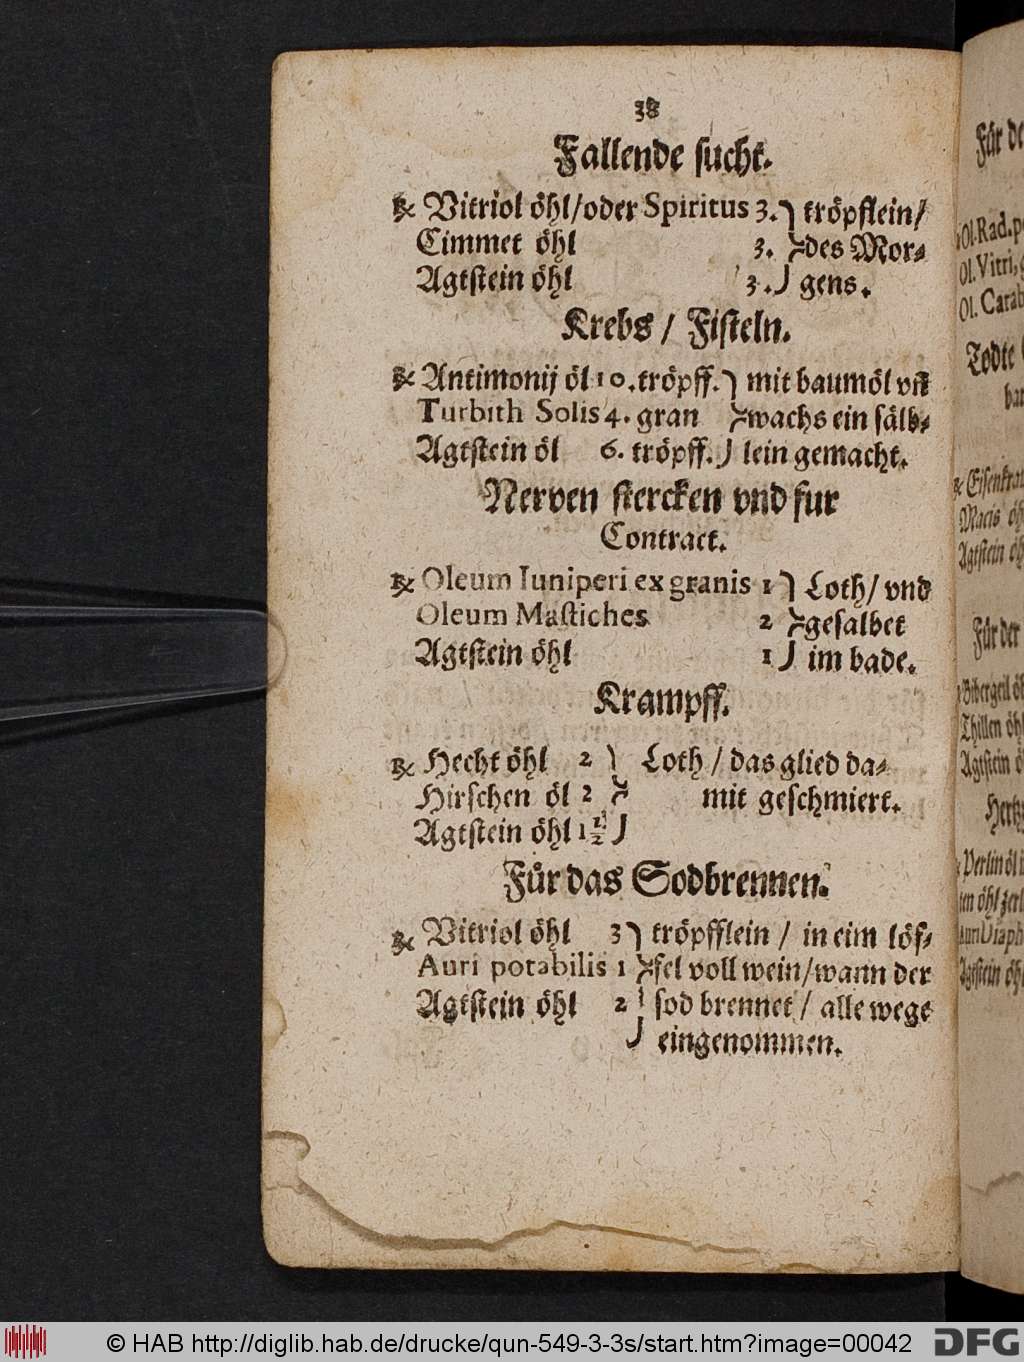 38
Fallende sucht.
℞ Vitriol öhl/oder Spiritus 3. } tröpflein/
Cimmet öhl 3. } des Mor⸗
Agtstein öhl 3. } gens.
Krebs / Fisteln.
℞ Antimonij öl 10. tröpff. } mit baumöl vñ
Turbith Solis 4. gran } wachs ein sälb⸗
Agtstein öl 6. tröpff. } lein gemacht.
Nerven stercken vnd fur
Contract.
℞ Oleum Iuniperi ex granis 1 } Loth/ vnd
Oleum Mastiches 2 } gesalbet
Agtstein öhl 1 } im bade.
Krampff.
℞ Hecht öhl 2 } Loth / das glied da⸗
Hirschen öl 2 } mit geschmiert.
Agtstein öhl 1½ }
Für das Sodbrennen.
℞ Vitriol öhl 3 } tröpfflein / in eim löf⸗
Auri potabilis 1 } fel voll wein/wann der
Agtstein öhl 2 } sod brennet / alle wege
eingenommen.
Für
Ol. Rad.
Ol. Vitri.
Ol. Carab
Todte
℞ Eisenkrau
Macis öh
Agtstein öh
Für der
Bibergeil öh
Thillen öh
Agtstein ö
Hertz
Perlin öl
öhl zerl
Auri Diaph
Agtstein öh
© HAB http://diglib.hab.de/drucke/qun-549-3-3s/start.htm?image=00042
DFG